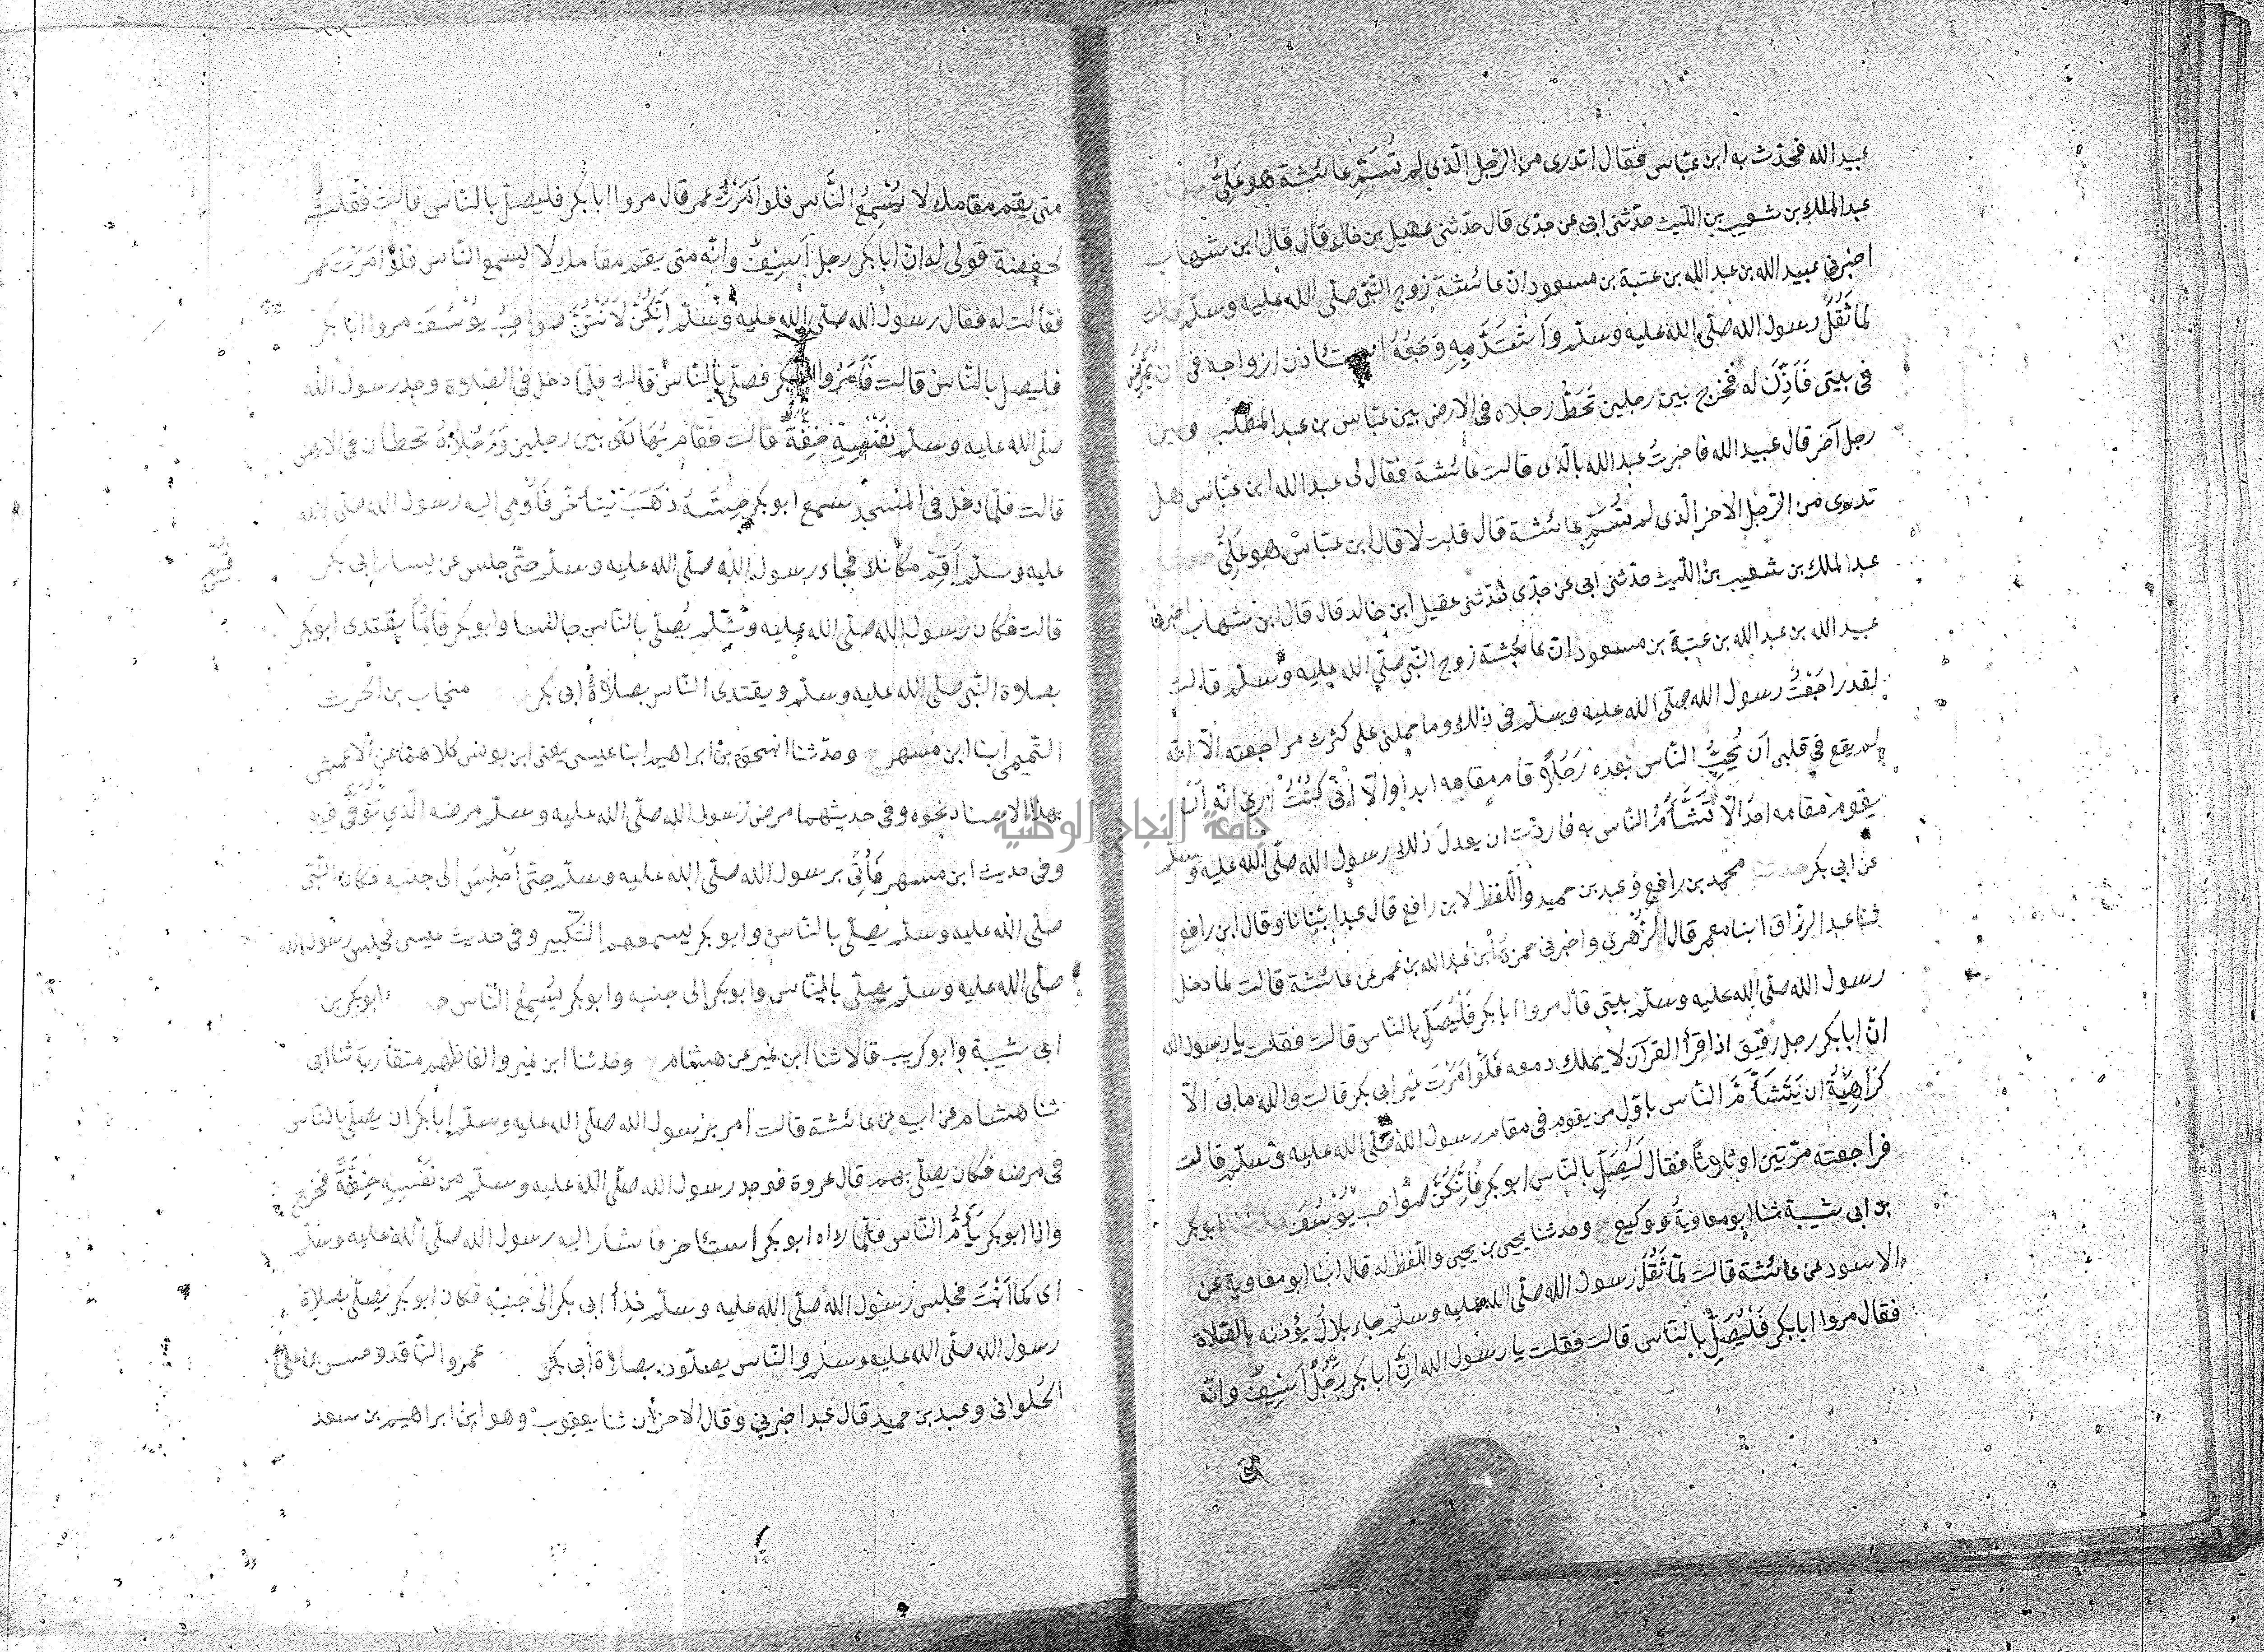 عبيد الله فحدثت به ابن عباس فقال اتدرى من الرّجل الّذي لم تُسَمِّ عائشة هو عَلِيٌّ حدثني
عبد الملك بن شعيب بن الليث حدّثنى ابى عن جدّى قال حدّثنى عقيل بن خالد قال قال ابن شهاب
اخبرنى عبيد الله بن عبد الله بن عتبة بن مسعود انّ عائشة زوج النّبيّ صلّى الله عليه وسلّم قالت
لما ثَقُلَ رسول الله صلّى الله عليه وسلّم وَاشْتَدَّ بِهِ وَجَعُهُ استئاذن ازواجه فى ان يُمَرَّضَ
فى بيتى فَأَذِنَّ له فخرج بين رجلين تَخُطُّ رجلاه فى الارض بين عبّاس بن عبد المطّلب وبين
رجل آخر قال عبيد الله فاخبرتُ عبد الله بالّذى قالت عائشة فقال لى عبد الله ابن عبّاس هل
تدرى من الرّجل الاخر الّذى لم تُسَمِّ عائشة قال قلت لا قال ابن عبّاس هو عَلِيٌّ حدثنا
عبد الملك بن شعيب بن اللّيث حدّثنى ابى عن جدّى حدّثنى عقيل ابن خالد قال قال ابن شهاب اخبرنى
عبيد الله بن عبد الله بن عتبة بن مسعود انّ عائشة زوج النّبي صلّى الله عليه وسلّم قالت
لقد راجَعْتُ رسول الله صلّى الله عليه وسلّم فى ذلك وما حملنى على كثرت مراجعته الّا انّه
لم يقع فى قلبى ان يُحِبَّ النّاس بعده رَجُلًا قام مقامه ابدا والّا أنّى كُنْتُ ارى انه لَنْ
يقوم مقامه احدٌ الّا تَشَأَّمَ النّاس به فاردت ان يعدل ذلك رسول الله صلّى الله عليه وسلّم
عن ابى بكر حدثنا محمد بن رافع وعبد بن حميد واللّفظ لابن رافع قال عبد انبانا وقال ابن رافع
ثنا عبد الرزّاق ابنا معمر قال الزّهرى واخبرنى حمزة ابن عبد الله بن عمر عن عائشة قالت لما دخل
رسول الله صلّى الله عليه وسلّم بيتى قال مروا ابا بكر فَلْيُصَلِّ بالنّاس قالت فقلت يا رسول الله
انّ ابا بكر رجل رقيق اذا قرأ القرآن لا يملك دمعه فَلَوْ امَرْتَ غير ابى بكر قالت والله ما بى الّا
كَرَاهِيَةُ ان يَتَشَأَّمَّ النّاس باوّل من يقوم فى مقام رسول الله صَلّى الله عليه وسلّم قالت
فراجعته مرّتين او ثلاثًا فقال لَيُصَلِّ بالنّاس ابو بكر فَإنَّكُنَّ صَوَاحِبُ يُوْسُفَ حدثنا ابو بكر
بن ابى شيبة ثنا ابو معاوية ووكيع ح وحدثنا يحيى بن يحيى واللّفظ له قال ابنا ابو معاوية عن
الاسود عن عائشة قالت لَمّا ثَقُلَ رسول الله صلّى الله عليه وسلّم جاء بلالٌ يؤذنه بالصّلاة
فقال مروا ابا بكر فَلْيُصَلِّ بالنّاس قالت فقلت يا رسول الله انّ ابا بكر رَجُلٌ اَسِيفٌ وانّه
متى
متى يقم مقامك لا يُسْمِعُ النَّاس فلو اَمَرْتَ عمر قال مروا ابا بكر فليصلّ بالنّاس قالت فقلت
لحفصة قولى له انّ ابا بكر رجل اَسِيفٌ وانّه متى يقم مقامك لا يسمع النّاس فلوْ امَرْتَ عمر
فقالت له فقال رسول الله صلّى الله عليه وسلّم اِنَّكُنَّ لَاَنْتُنَّ صواحِبُ يُوْسُفَ مروا ابا بكر
فليصل بالنّاس قالت فَاَمَرُوا ابا بكر فصلّى بالنّاس قالت فلمّا دخل فى الصّلاوة وجد رسول الله
صلّى الله عليه وسلّم نَفْسِهِ خِفّةً قالت فقام يُهَادَى بين رجلين وَرِجْلَاهُ تخطان فى الارض
قالت فلمّا دخل فى المسجد سمع ابو بكر حِسَّهُ ذَهَبَ يَتَأَخَّرُ فَأَوْمى اليه رسول الله صلّى الله
عليه وسلّم اَقِمْ مكانك فجاء رسول الله صلّى الله عليه وسلّم حتّى جلس عن يسار ابى بكر
قالت فكان رسول الله صلّى الله عليه وسلّم يُصَلّى بالنّاس جالسا وابو بكر قائمًا يقتدى ابو بكر
بصلاة النّبى صلّى الله عليه وسلّم ويقتدى النّاس بصلاةُ ابى بكر منجاب بن الحرث
التّميمى ابنا ابن مسهر ح وحدّثنا اسحق بن ابراهيم ابنا عيسى يعنى ابن يونس كلاهما عن الاعمش
بهذا الاسناد نحوه وفى حديثهما مرض رسول الله صلّى الله عليه وسلّم مرضه الّذي تُوُفِّيَ فيه
وفى حديث ابن مسهر فَأُتِىَ برسول الله صلّى الله عليه وسلّم حتّى اُجْلِسَ الى جنبه فكان النّبى
صلّى الله عليه وسلّم يصلّى بالنّاس وابو بكر يسمعهم التّكبير وفى حديث عيسى فجلس رسول الله
صلّى الله عليه وسلّم يصلّى بالنّاس وابو بكر الى جنبه وابو بكر يُسْمِعُ النّاس ابو بكر بن
ابى شيبة وابو كريب قالا ثنا ابن نمير عن هشام ح وحدثنا ابن نمير والفاظهم متقاربة ثنا ابى
ثنا هشام عن ابيه عن عائشة قالت امر رسول الله صلّى الله عليه وسلّم ابا بكر ان يصلّى بالنّاس
فى مرضه فكان يصلّى بهم قال عروة فوجد رسول الله صلّى الله عليه وسلّم من نَفْسِهِ خِفَّةً فخرج
واذا ابو بكر يَأُمُّ النّاس فلمّا رءاه ابو بكر استئاخر فاشار اليه رسول الله صلّى الله عليه وسلّم
اى كما اَنْتَ فجلس رسول الله صلّى الله عليه وسلّم حِذَأَ ابى بكر الى جَنْبِهِ فكان ابو بكر يصلّى بصلاة
رسول الله صلّى الله عليه وسلّم والنّاس يصلّون بصلاة ابى بكر عمرو النّاقد وحسن بن علىّ
الحُلوانى وعبد بن حميد قال عبد اخبرني وقال الاخران ثنا يعقوب وهو ابن ابراهيم بن سعد
جامعة النجاح الوطنية